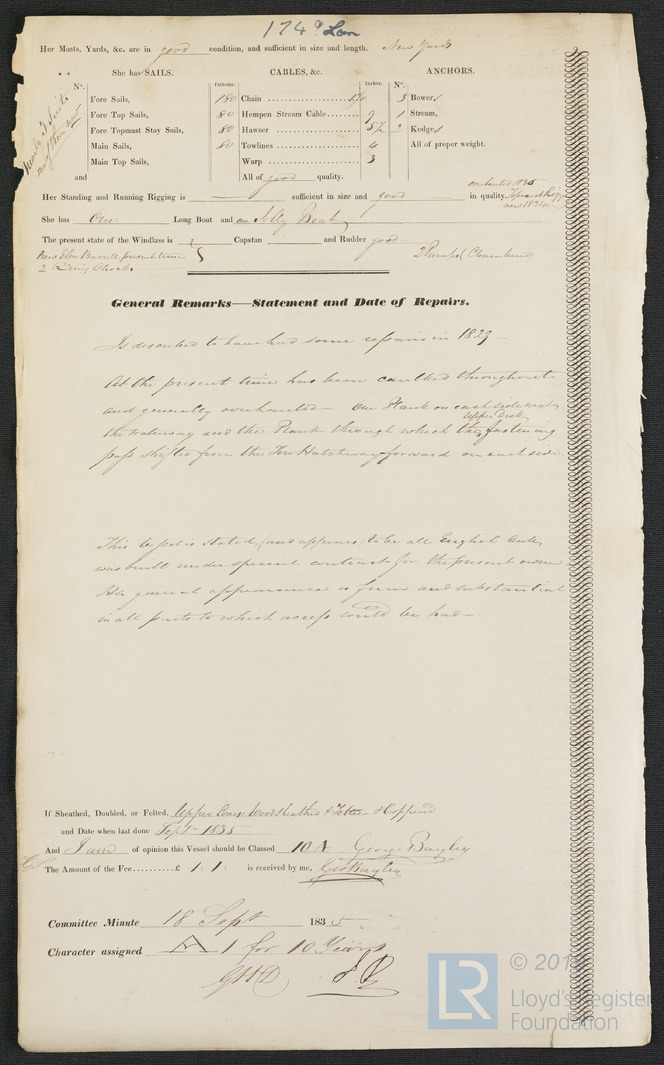 1749 Lon
Her Masts, Yards, &c. are in good condition, and sufficient in size and length. New York
She has SAILS. CABLES, &c. ANCHORS.
Nº. Fathoms. Inches. Nº.
Nearly 2 Suits
Fore Sails, 180 Chain 3 Bowers
Fore Top Sails, 80 Hempen Stream Cable 9 1 Stream,
Fore Topmast Stay Sails, 80 Hawser 5½ 2 Kedges
Main Sails, 80 Towlines 4 All of proper weight.
Main Top Sails, Warp 3
and All of good quality.
overhauled 1835
Her Standing and Running Rigging is sufficient in size and good in quality. Topmast Rigg
new 1834
She has One Long Boat and one Jolly Boat
The present state of the Windlass is Capstan and Rudder good
New Elm Barrell present time 2 Pumps
2 Riding Chocks
General Remarks—Statement and Date of Repairs.
Is described to have had some repairs in 1829
At the present time has been caulked throughout
and generally overhauled — One Plank on each side next
Upper Deck
the waterway and the Plank through which the fastening
pass shifted from the Fore Hatchway forward on each side
This vessel is stated (and appears) to be all English Oak,
was built under special contract for the present owner
Her general appearance is firm and substantial
in all parts to which access could be had —
If Sheathed, Doubled, or Felted, Upper Course Wood Sheathed & Felted & Coppered
and Date when last done Sept 1835
And I am of opinion this Vessel should be Classed 10 A George Bayley
The Amount of the Fee......£ 1: 1: is received by me, Geo Bayley
Committee Minute 18 Sept 1835
Character assigned A 1 for 10 Years
© 201
LR Lloyd's Register
Foundation